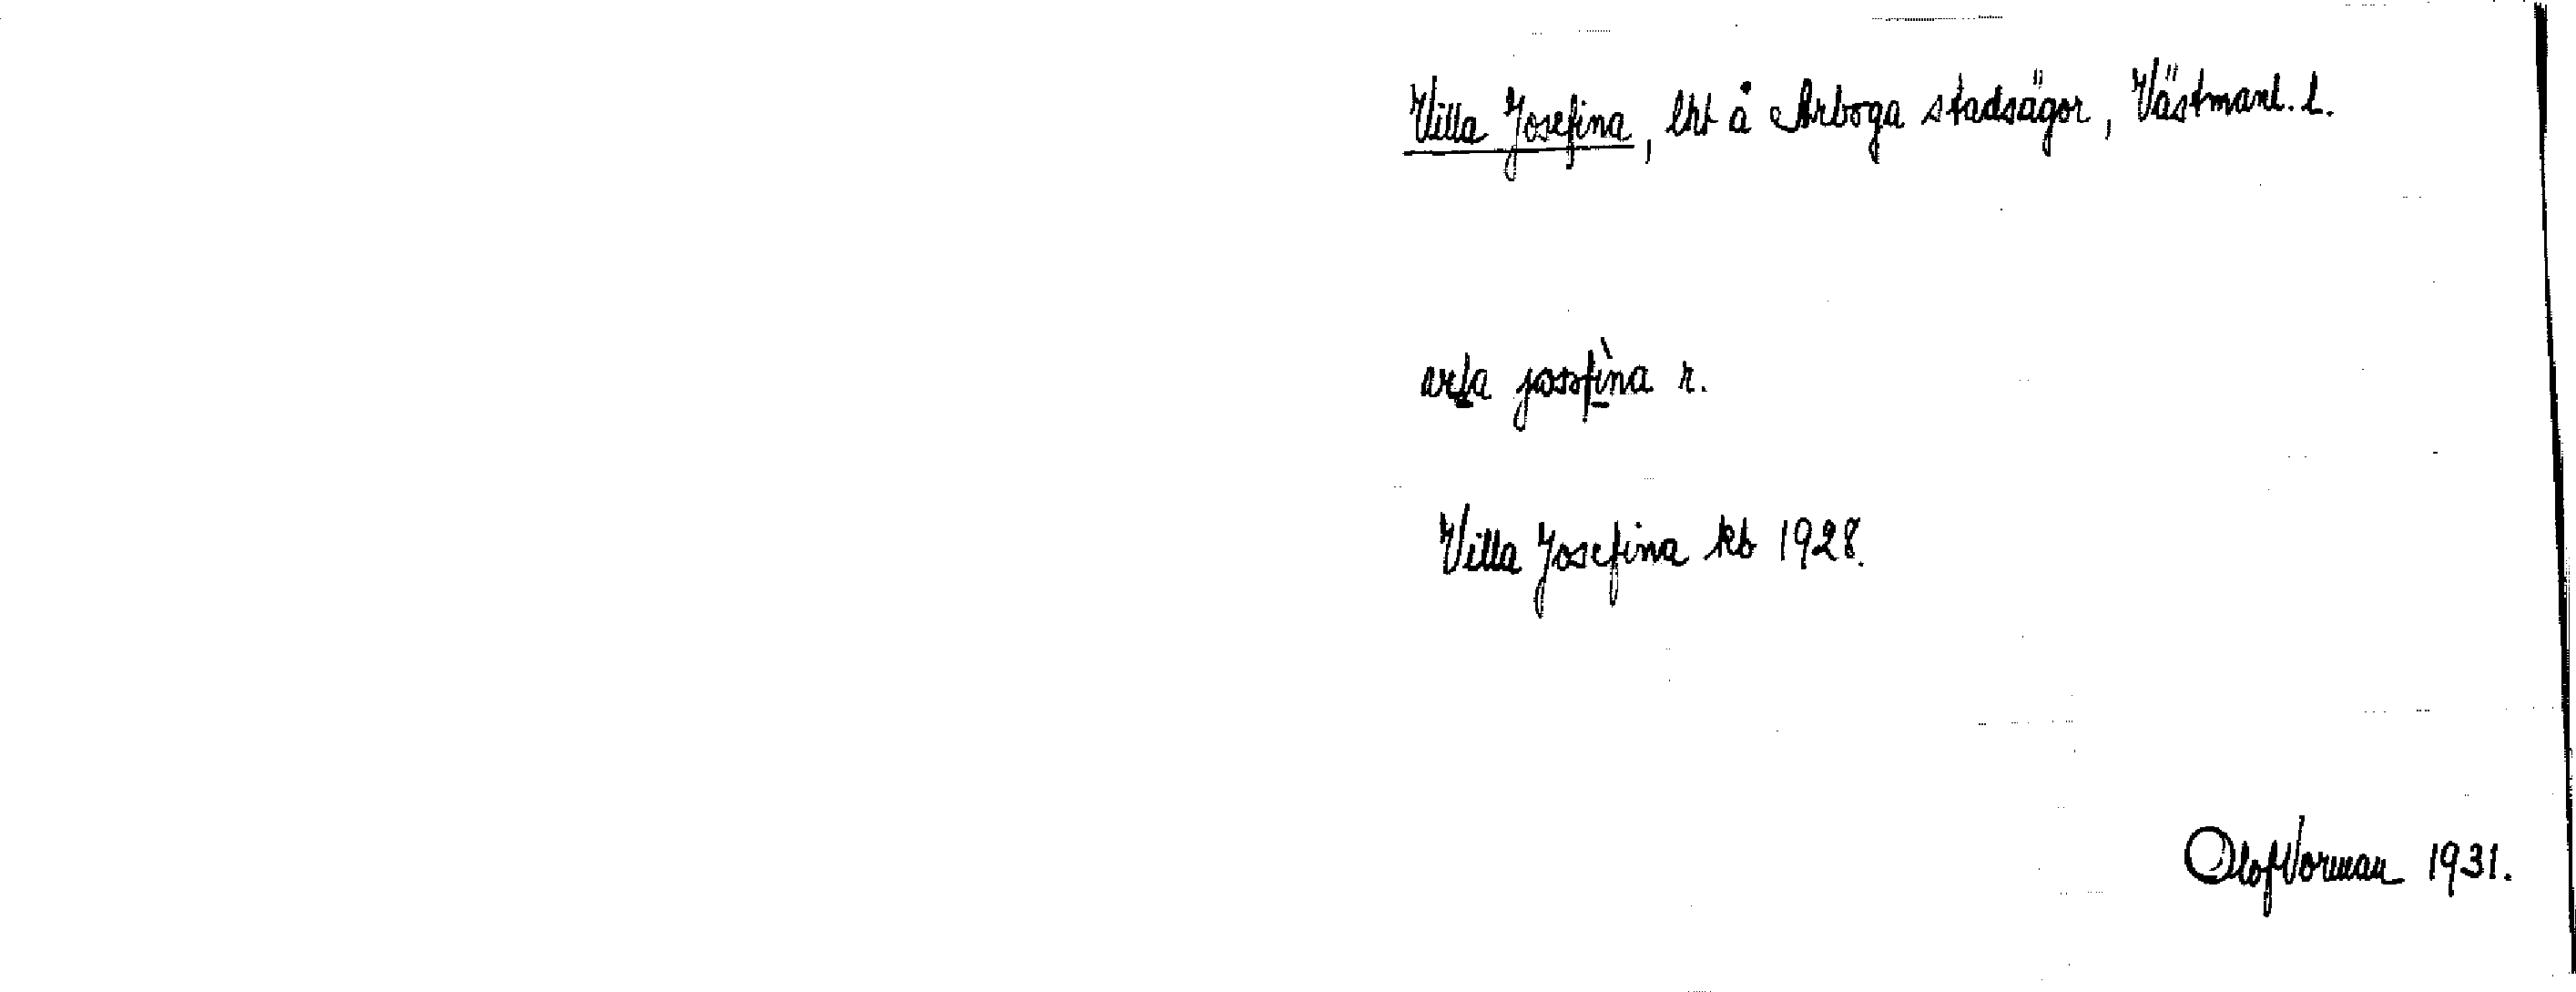 Villa Josefina, lht å Arboga stadsägor, Västmanl. l.
josefìna r.
Villa Josefina kb 1928.
Olof Vorman 1931.